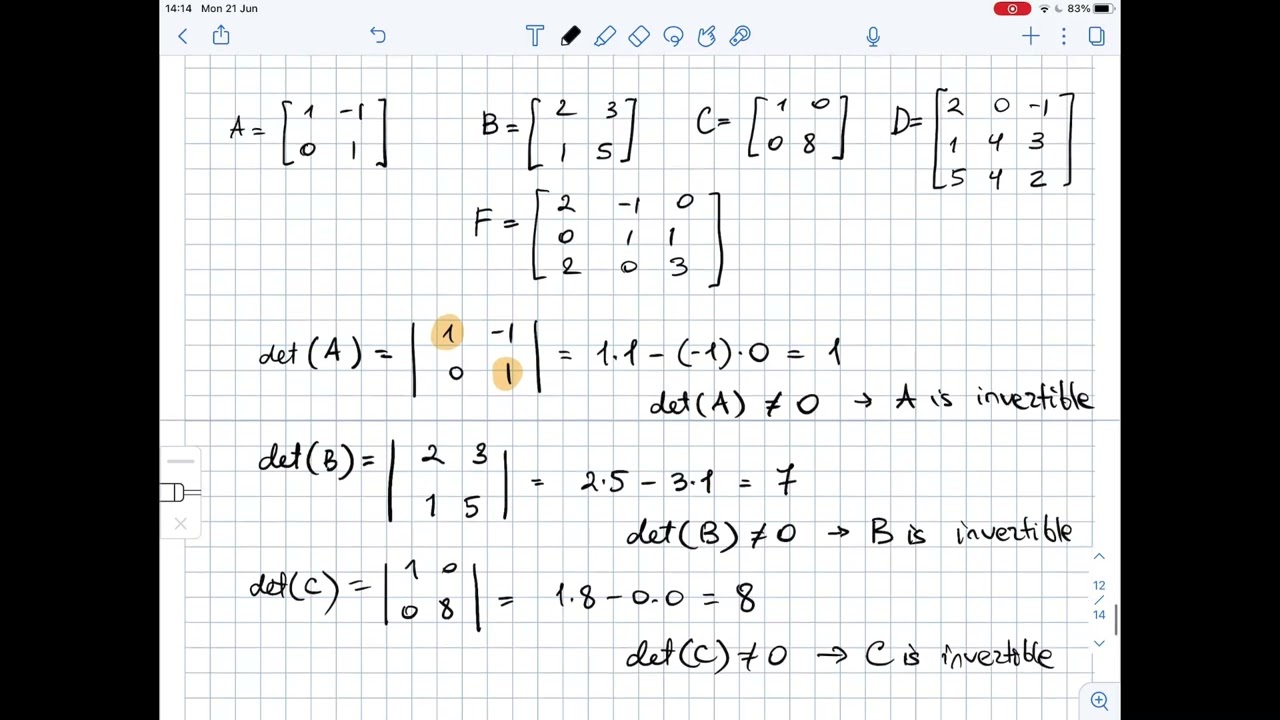 14:14 Mon 21 Jun 83%
A = [1 -1; 0 1] B = [2 3; 1 5] C = [1 0; 0 8] D = [2 0 -1; 1 4 3; 5 4 2]
F = [2 -1 0; 0 1 1; 2 0 3]
det(A) = |1 -1; 0 1| = 1·1 - (-1)·0 = 1
det(A) ≠ 0 → A is invertible
det(B) = |2 3; 1 5| = 2·5 - 3·1 = 7
det(B) ≠ 0 → B is invertible
det(C) = |1 0; 0 8| = 1·8 - 0·0 = 8
det(C) ≠ 0 → C is invertible
12
/
14